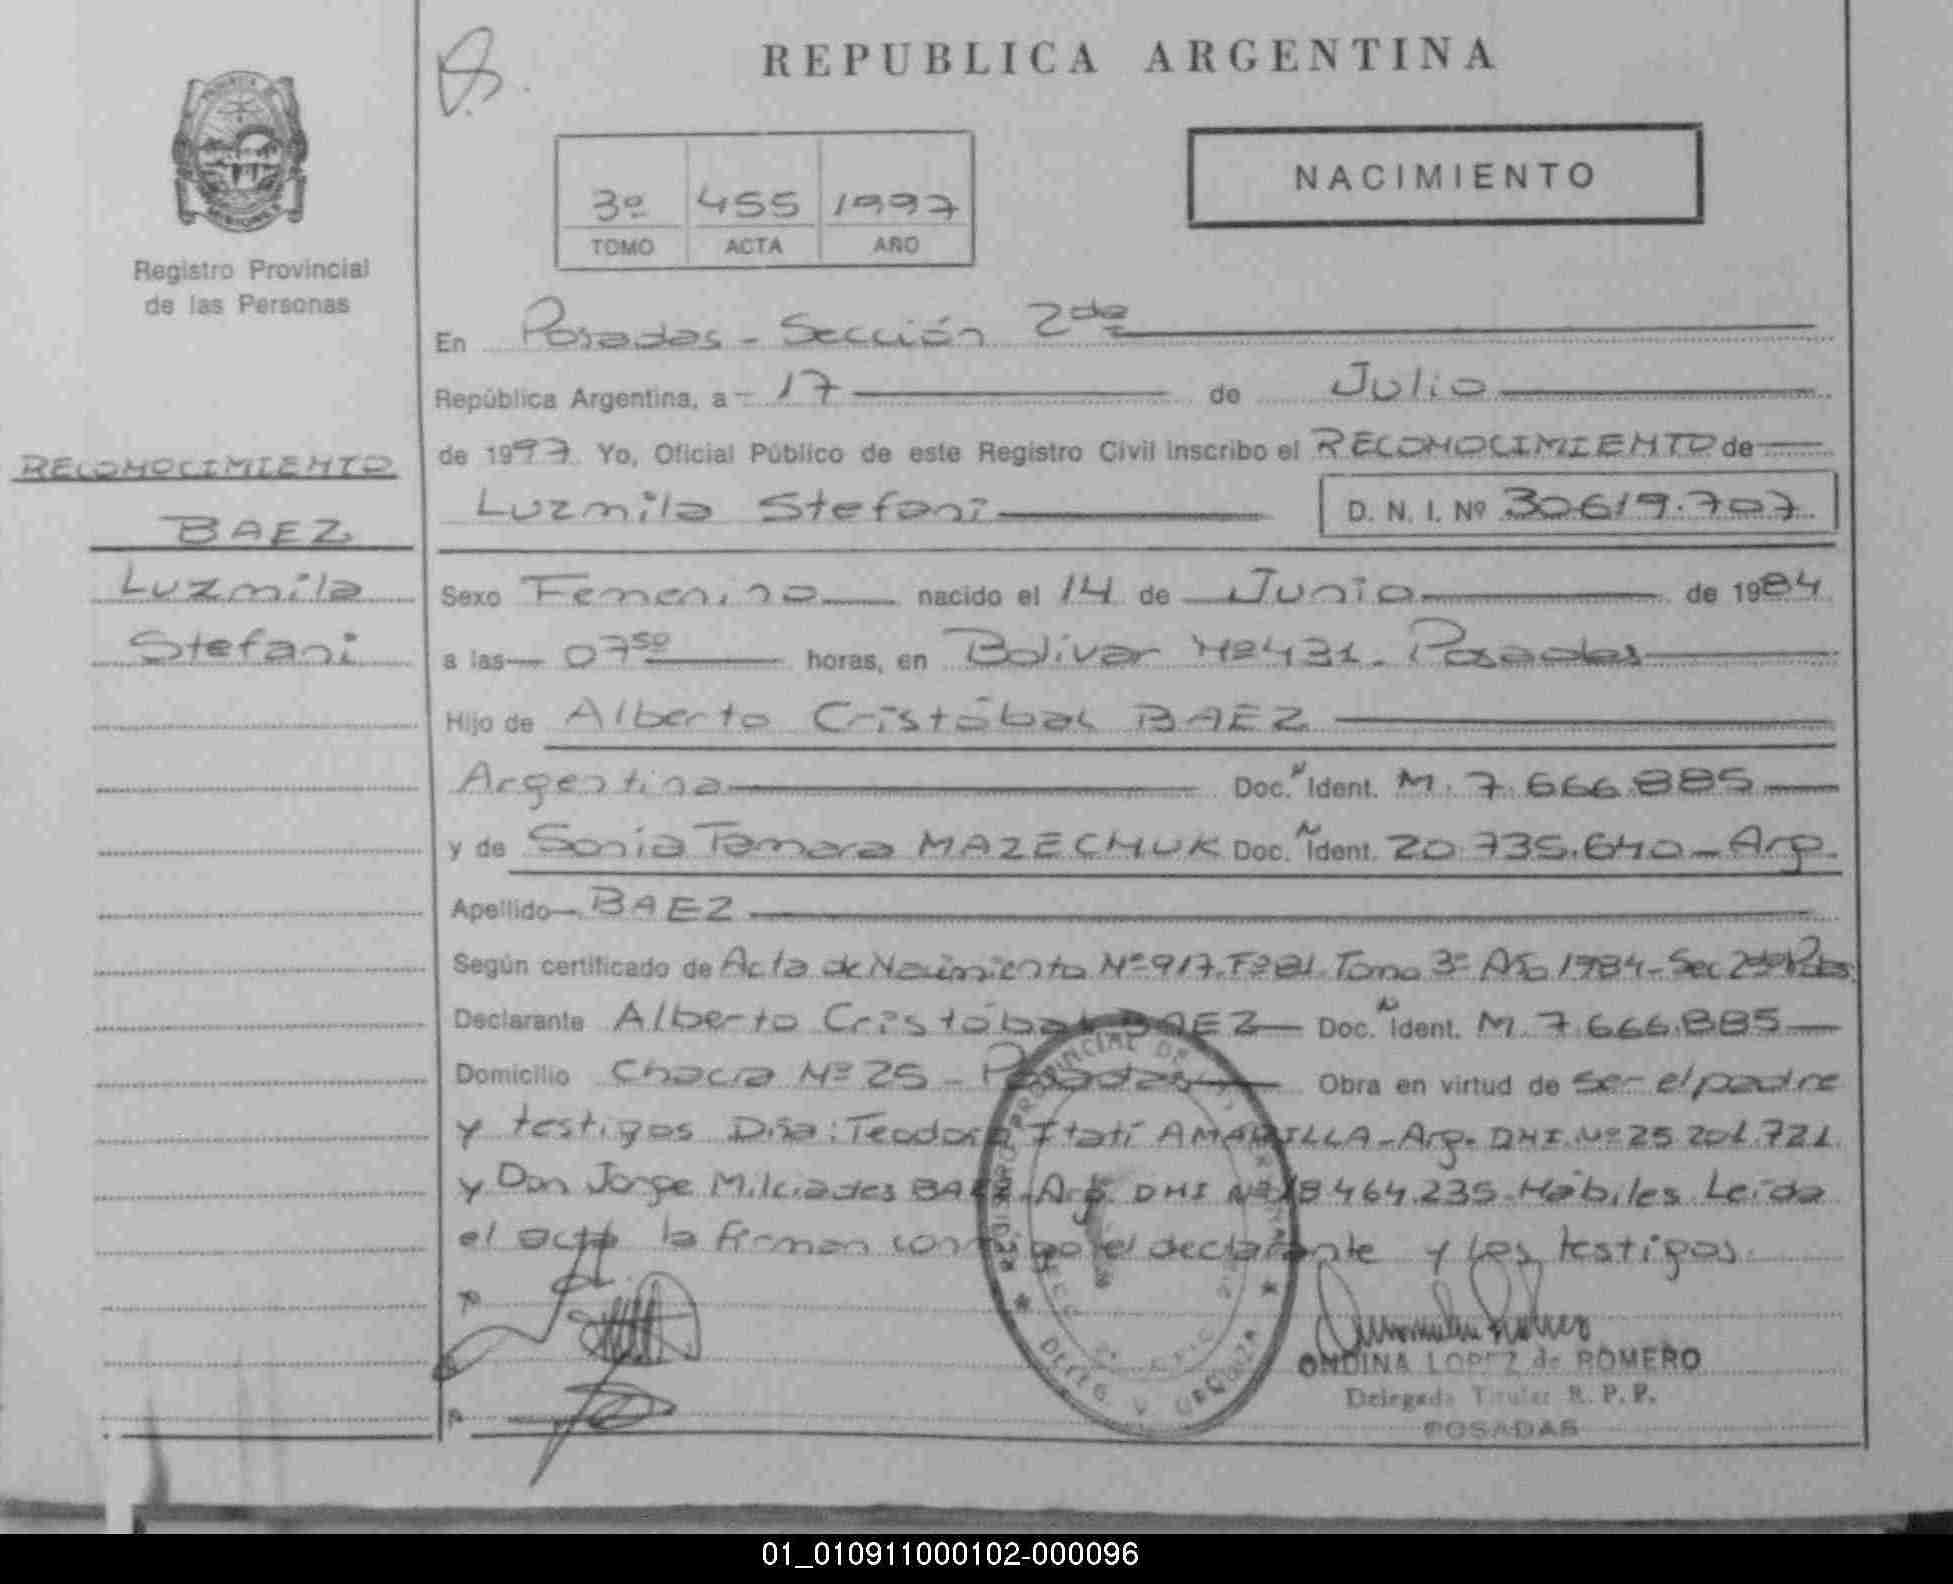 REPUBLICA ARGENTINA
NACIMIENTO
3º 455 1997
TOMO ACTA AÑO
Registro Provincial
de las Personas
RECONOCIMIENTO
BAEZ
Luzmila
Stefani
En Posadas - Sección 2da
República Argentina, a 17 de Julio
de 1997 Yo, Oficial Público de este Registro Civil inscribo el RECONOCIMIENTO de
Luzmila Stefani D. N. I. Nº 30619.707
Sexo Femenino nacido el 14 de Junio de 1984
a las 07 50 horas, en Bolivar Nº 431 - Posadas
Hijo de Alberto Cristóbal BAEZ
Argentina Doc. Ident. M. 7.666.885
y de Sonia Tamara MAZECHUK Doc. Ident. 20.735.640 - Arg.
Apellido BAEZ
Según certificado de Acta de Nacimiento Nº 917. Fº 81. Tomo 3º Año 1984 - Sec 2da Pdas
Declarante Alberto Cristóbal BAEZ Doc. Ident. M. 7.666.885
Domicilio Chacra Nº 25 - Posadas Obra en virtud de ser el padre
y testigos Dña: Teodora Itatí AMARILLA - Arg. DNI. Nº 25.201.721
y Don Jorge Milciades BAEZ - Arg. DNI Nº 18.464.235. Hábiles. Leída
el acta la firman conmigo el declarante y los testigos.
REGISTRO PROVINCIAL DE
DELEG. V. URQUIZA
ONDINA LOPEZ de ROMERO
Delegada Titular R. P. P.
POSADAS
01_010911000102-000096